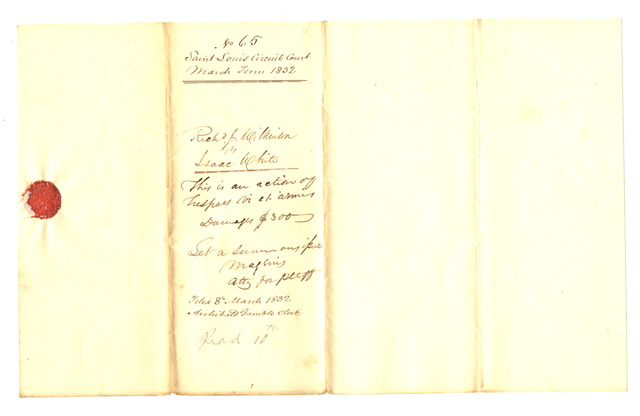 No 65
Saint Louis Circuit Court
March Term 1832
Richd J Wilkinson
vs
Isaac White
This is an action of
trespass vi et armis
Damages $300
Let a summons issue
Magenis
atty for ptff
Filed 8th March 1832
Archibald Gamble Clerk
10